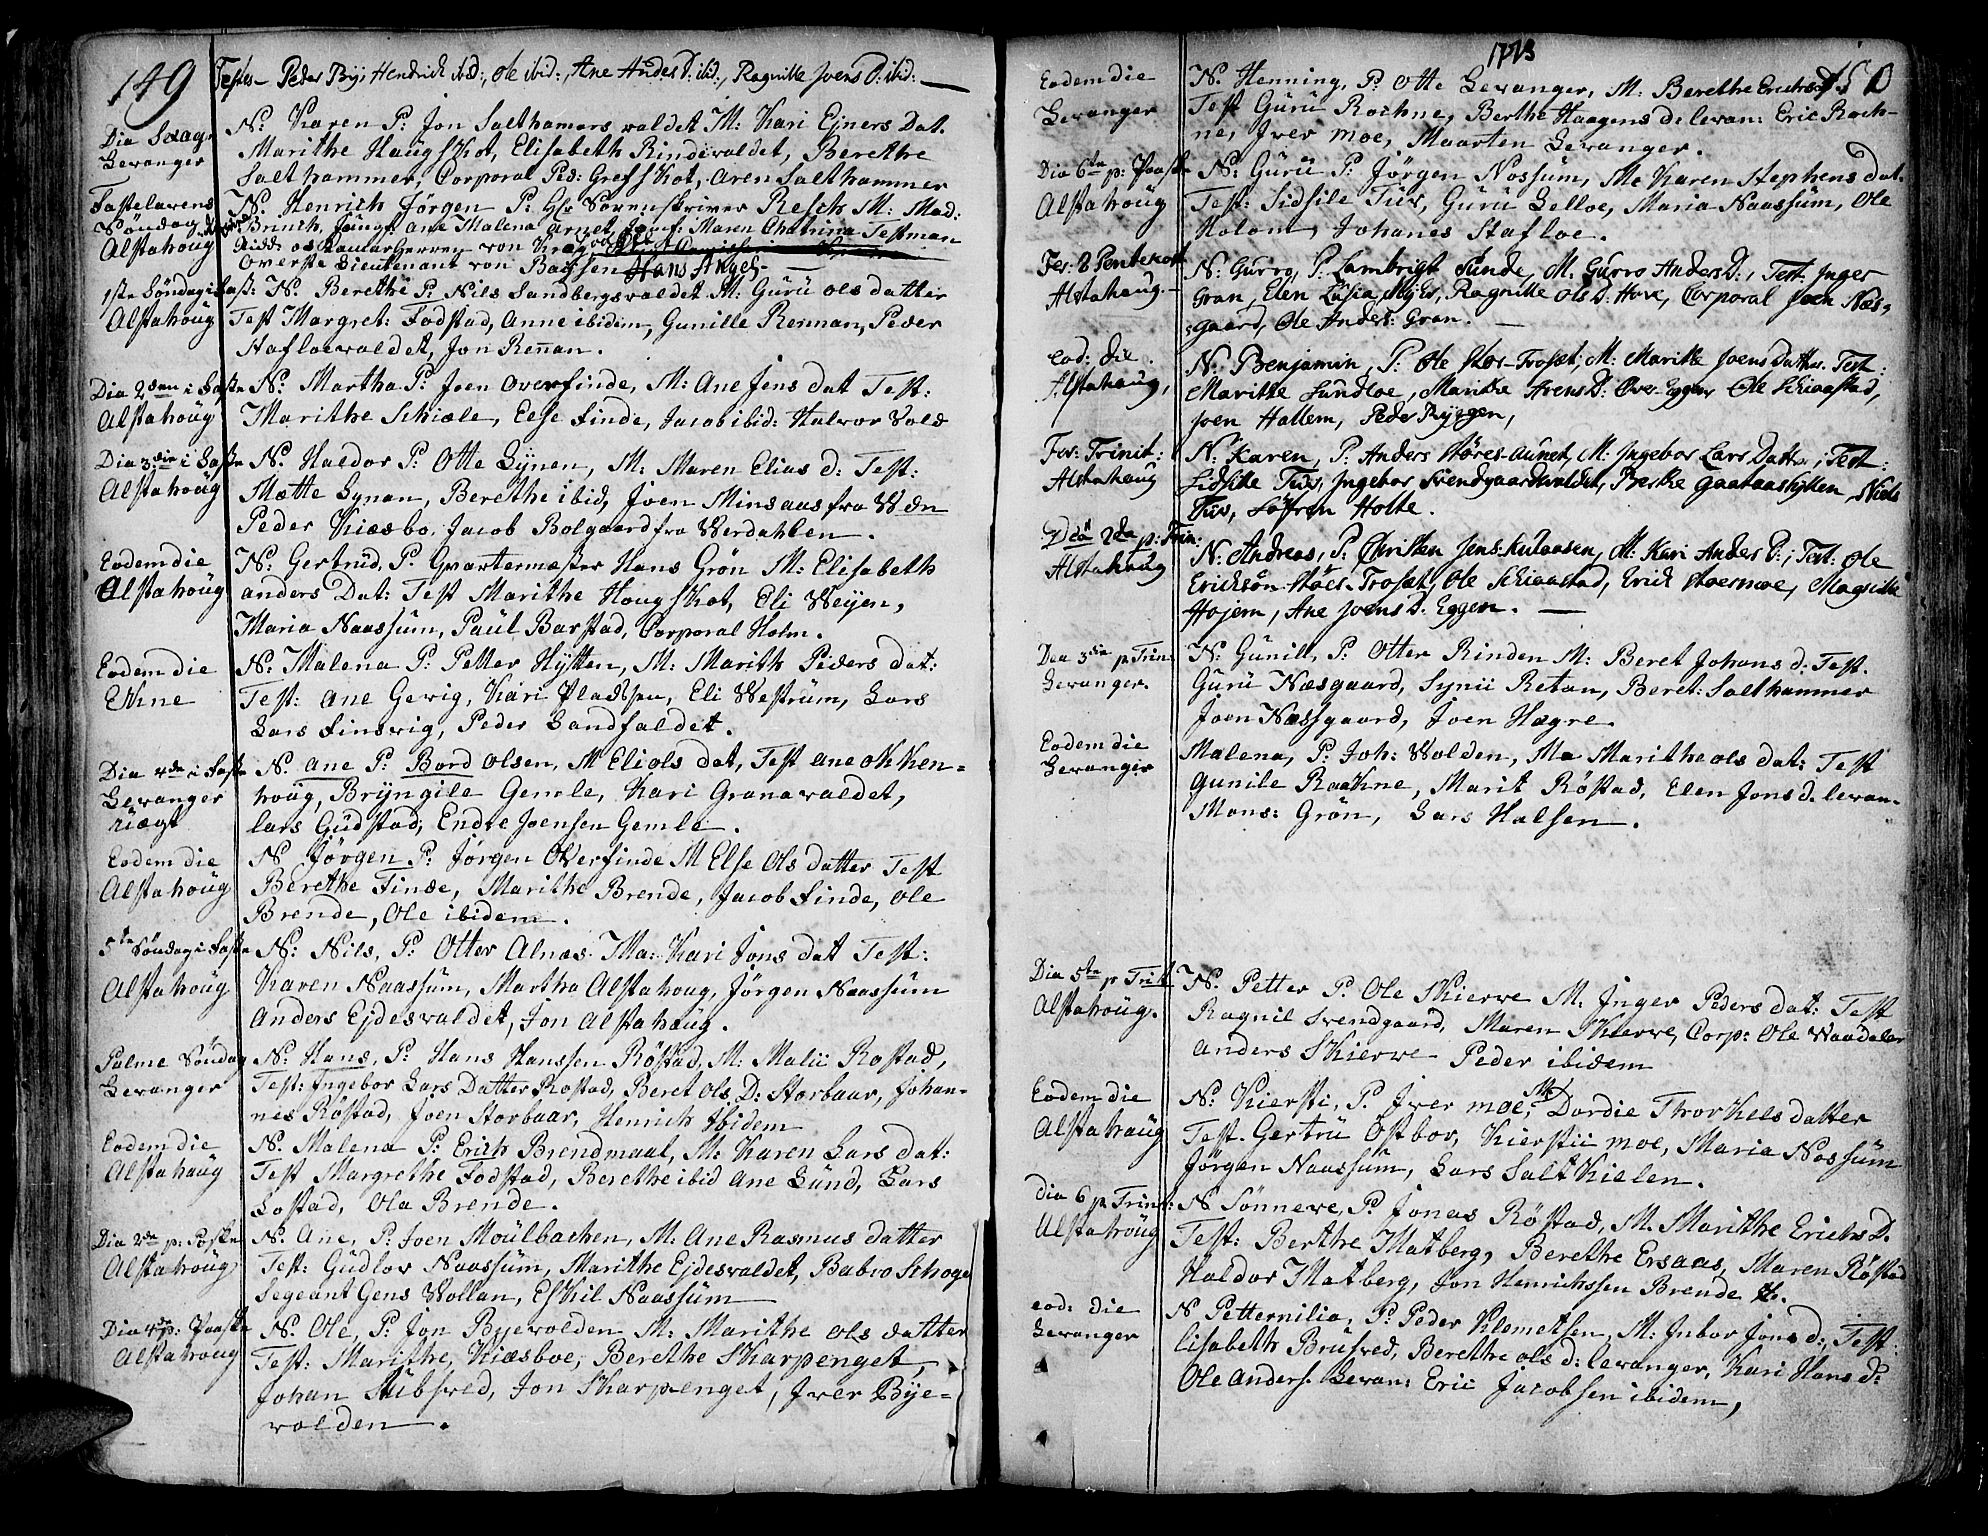 149
Testes Peder Bÿe Hendrich ibid:, Ole ibid:, Ane Andes D: ibid:, Ragnille Joens D: ibid:
Lewanger
N: Karen P: Jon Salthamers waldet M: Kari Ejners Dat.
Marithe Haugskot, Elisabeth Rindewaldet, Berethe
Salthammer, Corporal Ped: Gresskot, Aren Salthammer
Fastelavens
Søndag
Alstahoug
N: Henrich Jörgen P: Hr Sorenskriver Resch M: Mad:
Brinch, Jüngf: ane Malena Arnet, Jomf: Maren Chatrina Testman
Overste Lieutenant von Bassen Hans Angel
1ste Söndag i Fast:
Alstahoug
N. Berethe P: Nils Sandbergswaldet M: Gurü ols datter
Test Margret: Fodstad, Anne ibidem, Gunille Rennan, Peder
Hafloewaldet, Jon Reñan.
Dia 2den i Faste
Alstahoug
N: Martha P: Joen Overfinde, M: Ane Jens dat Test:
Marithe Schiele, Else Finde, Jacob ibid: Halvor Vold
Dia 3die i Faste
Alstahoug
N. Haldor P: Otte Lÿnen, M: Maren Elias d: Test:
Mætte Lynan, Berethe ibid, Joen Minsaas fra Wdn
Peder Kiæsbo, Jacob Bolgaard fra Werdahlen.
Eodem die
Alstahoug
N: Gertrüd, P: Qvartermæster Hans Grön M: Elisabeth
anders Dat: Test Marithe Hougskot, Eli Weÿen,
Maria Naassüm, Paül Barstad, Corporal Holm.
Eodem die
Ekne
N: Malena P: Petter Hÿtten, M: Marith Peders dat:
Test: Ane Gewig, Kari Pladsen, Eli Westrüm, Lars
Lars Finswig, Peder Sandfaldet.
Dia 4de i Faste
Lewanger
N. Ane P: Bord Olsen, M Eli ols dat, Test ane okken-
houg, Brÿngile Gemle, Kari Granawaldet,
lars Gudstad, Endre Joensen Gemle.
Eodem die
Alstahoug
N Jörgen P: Jörgen Overfinde M Else Ols datter Test
Berethe Finde, Marithe Brende, Jacob Finde, Ole
Brende, Ole ibidem.
5te Söndag i Faste
Alstahoug
N: Nils, P: Otter Alnæs. Ma: Kari Jons dat Test:
Karen Naassüm, Martha Alstahoug, Jörgen Naassüm
Anders Ejdesvaldet, Jon Alstahaüg.
Palme Söndag
Lewanger
N: Hans, P: Hans Hanssen Röstad, M: Malii Rostad,
Test: Ingebor Lars Datter Rostad, Beret ols D: Storbaar, Johan-
nes Röstad, Joen Storbaar, Henrich Ibidem
Eodem die
Alstahaüg
N. Malena P: Erich Brendmaal, M: Karen Lars dat:
Test Margrethe Fodstad, Berethe ibid Ane Lünd, Lars
Lostad, Ola Brende.
Dia 2de p: Påske
Alstahoüg
N. Ane, P: Joen Moülbachen, M: Ane Rasmus datter
Test: Gudlov Naassüm, Marithe Ejdesvaldet, Babro Schoge
Segeant Gens Wollan, Eskil Naassüm
Dia 4de p: Paaske
Alstahoug
N. Ole, P: Jon Byewolden M: Marithe ols datter
Test: Marithe, Kiæsboe, Berethe Skarpenget,
Johan Stübswed, Jon Skarpenget, Jwer Bÿe-
wolden.
1773
150
Eodem die
Lewanger
N. Henning, P: Otte Lewanger, M: Berethe Erichs d.
Test Gurü Rochne, Berthe Haagens d: lewan: Eric Roch-
ne, Jver moe, Maarten Lewanger.
Dia 6te p: Paaske
Alstahoüg
N: Gurü P: Jörgen Nossum, M: Karen Stephens dat.
Test: Sidsile Tüv, Gurü Gelloe, Maria Naassüm, Ole
Holom, Johanes Stafloe.
Fer: 2 Pentekost
Alstahaug.
N: Gurro, P: Lambrigt Sunde, M: Gurro Anders D:, Test: Inger
Gran, Elen Lusia Mÿer, Ragnille Ols D: Hove, Corporal Joen Næs-
gaard, Ole Anders: Gran.
eod: die.
Alstahaug,
N: Benjamin, P: Ole Stor-Troset; M: Maritte Joens Datter. Test:
Maritte Sundloe, Maritte Arens D: Over-Eggen Ole Schiaastad,
Joen Hallem, Peder Ryggen,
Fer: Trinit:
Alstahaug
N: Karen, P: Anders Störes-aunet, M: Ingebor Lars Datter, Test:
Sidsille Tuv, Ingebor Svendgaardvaldet, Berthe Gaataashytten, Niels
Tuv, Söfren Holte.
2da p: Trin:
Alstahaug
N: Andreas, P: Christen Jens Kulaasen, M: Kari Anders D:, Test: Ole
Erickson Stöer-Troset, Ole Schiaastad, Erick Stoermoe, Magsille
Hojem, Ane Joens D: Eggen.
Dia 3die p Trin:
Lewanger.
N: Gunil, P: Otter Rinden M: Beret Johans d: Test.
Gurü Næsgaard, Synii Retan, Beret: Salthammer
Joen Næssgaard, Joen Hægre.
Eodem die
Lewanger
Malena, P: Joh: Wolden, Ma Marithe ols dat: Test
Gunile Raakne, Marit Röstad, Elen Jons d. lewan.
Mons: Grön, Lars Halsen.
Dia 5te p Trit
Alstahoüg.
N. Petter P: Ole Skierwe M: Jnger Peders dat: Test
Ragnil Svendgaard, Maren Skierwe, Corp: Ole Waadaler
Anders Skierwe Peder ibidem
Eodem die
Alstahaüg
N: Kiersti, P. Jwer moe, M: Dordie Thorkels datter
Test. Gertrü Ostbor, Kierstii moe, Maria Nossüm
Jörgen Naassüm, Lars Saltkielen.
Dia 6 p Trinit:
Alstahoüg
N Sönnewe, P: Jonas Röstad, M. Marithe Erichs D.
Test: Berthe Matberg, Berethe Ersaas, Maren Röstad
Haldor Matberg, Jon Henrichssen Brende
eod: die
Lewanger
N Petternilia, P: Peder Klemetsen, M: Jnbor Jons d:, Test:
Lisabeth Brüsved, Berethe ols d: lewanger, Kari Hans d:
Ole Anders. Lewan: Eric Jacobsen ibidem,